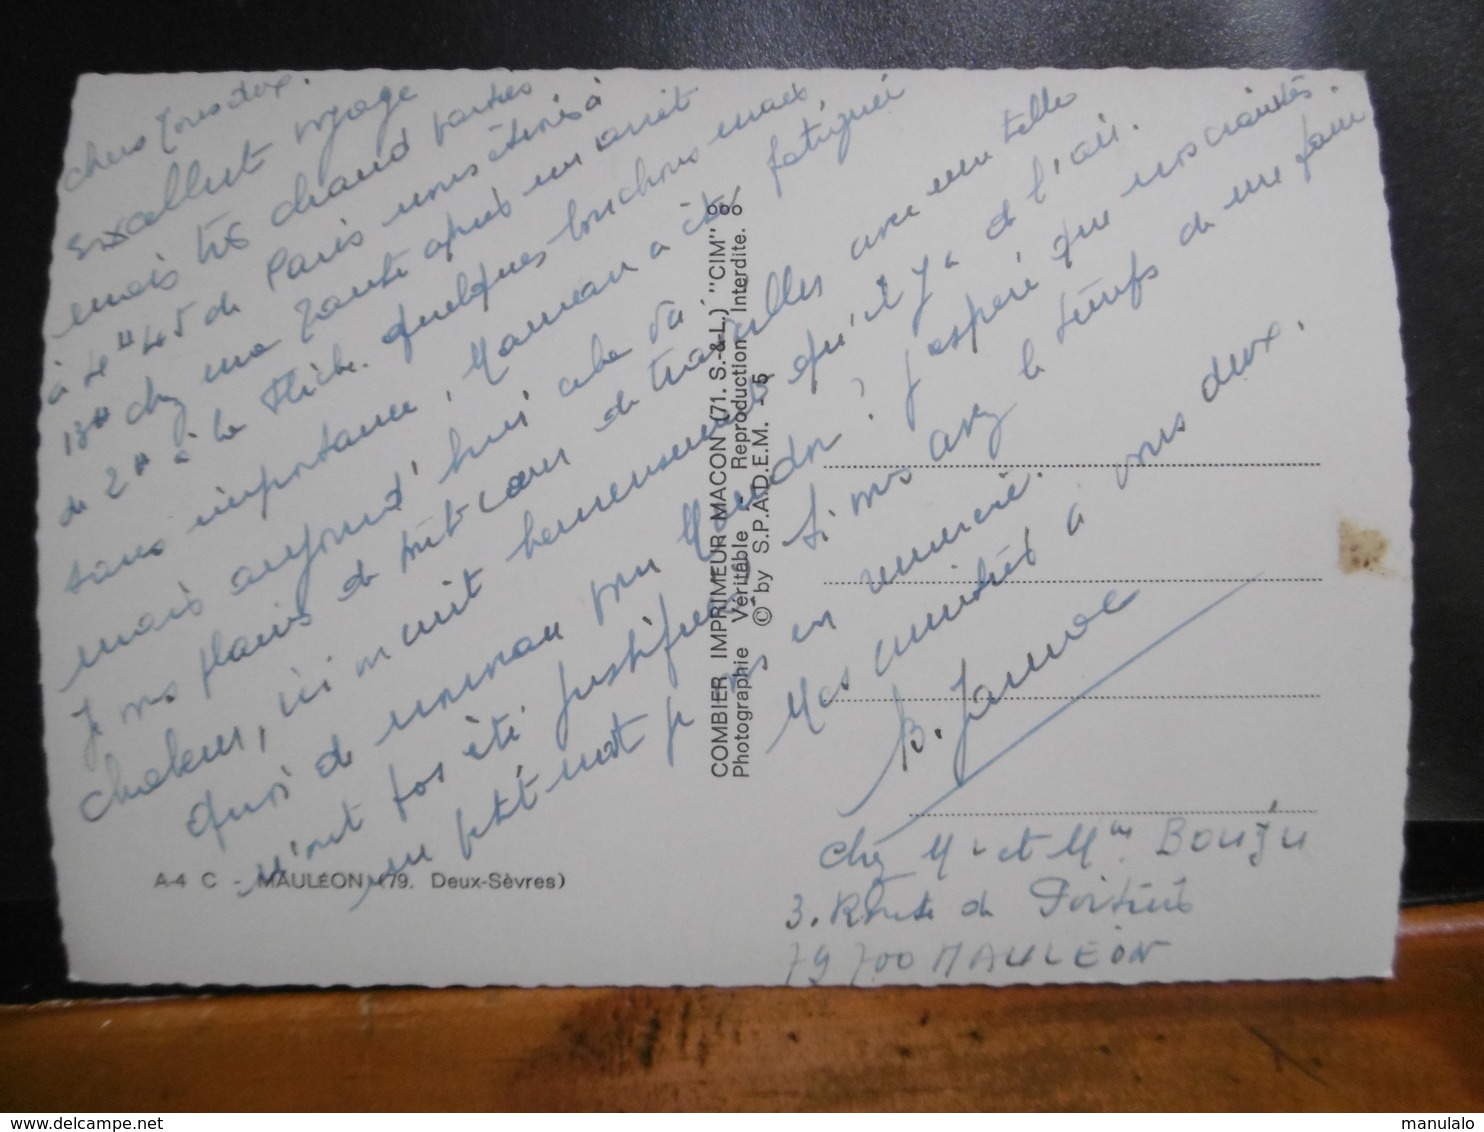 Chers tous deux.
Excellent voyage
mais très chaud partis
à 4H45 de Paris nous étions à
13H chez ma tante après un arrêt
de 2H à la Flèche. quelques bouchons mais,
sans importance, Maman a été fatiguée
mais aujourd'hui cela va
Je vous plains de travailler avec une telle
chaleur, ici m nuit heureusement qu'il y a de l'air.
Quoi de nouveau pour ? J'espère que vos craintes
n'ont pas été justifiées. Si vous avez le temps de me faire
un petit mot je vous en remercie.
Mes amitiés à vous deux.
B. Jamac
Chez Mr et Mme BOUJU
3. Route de Poitiers
79700 MAULEON
COMBIER IMPRIMEUR MACON (71. S.-&-L.) "CIM"
Photographie Véritable Reproduction Interdite.
© by S.P.A.D.E.M. - 5
A-4 C - MAULÉON (79. Deux-Sèvres)
delcampe.net
manulalo